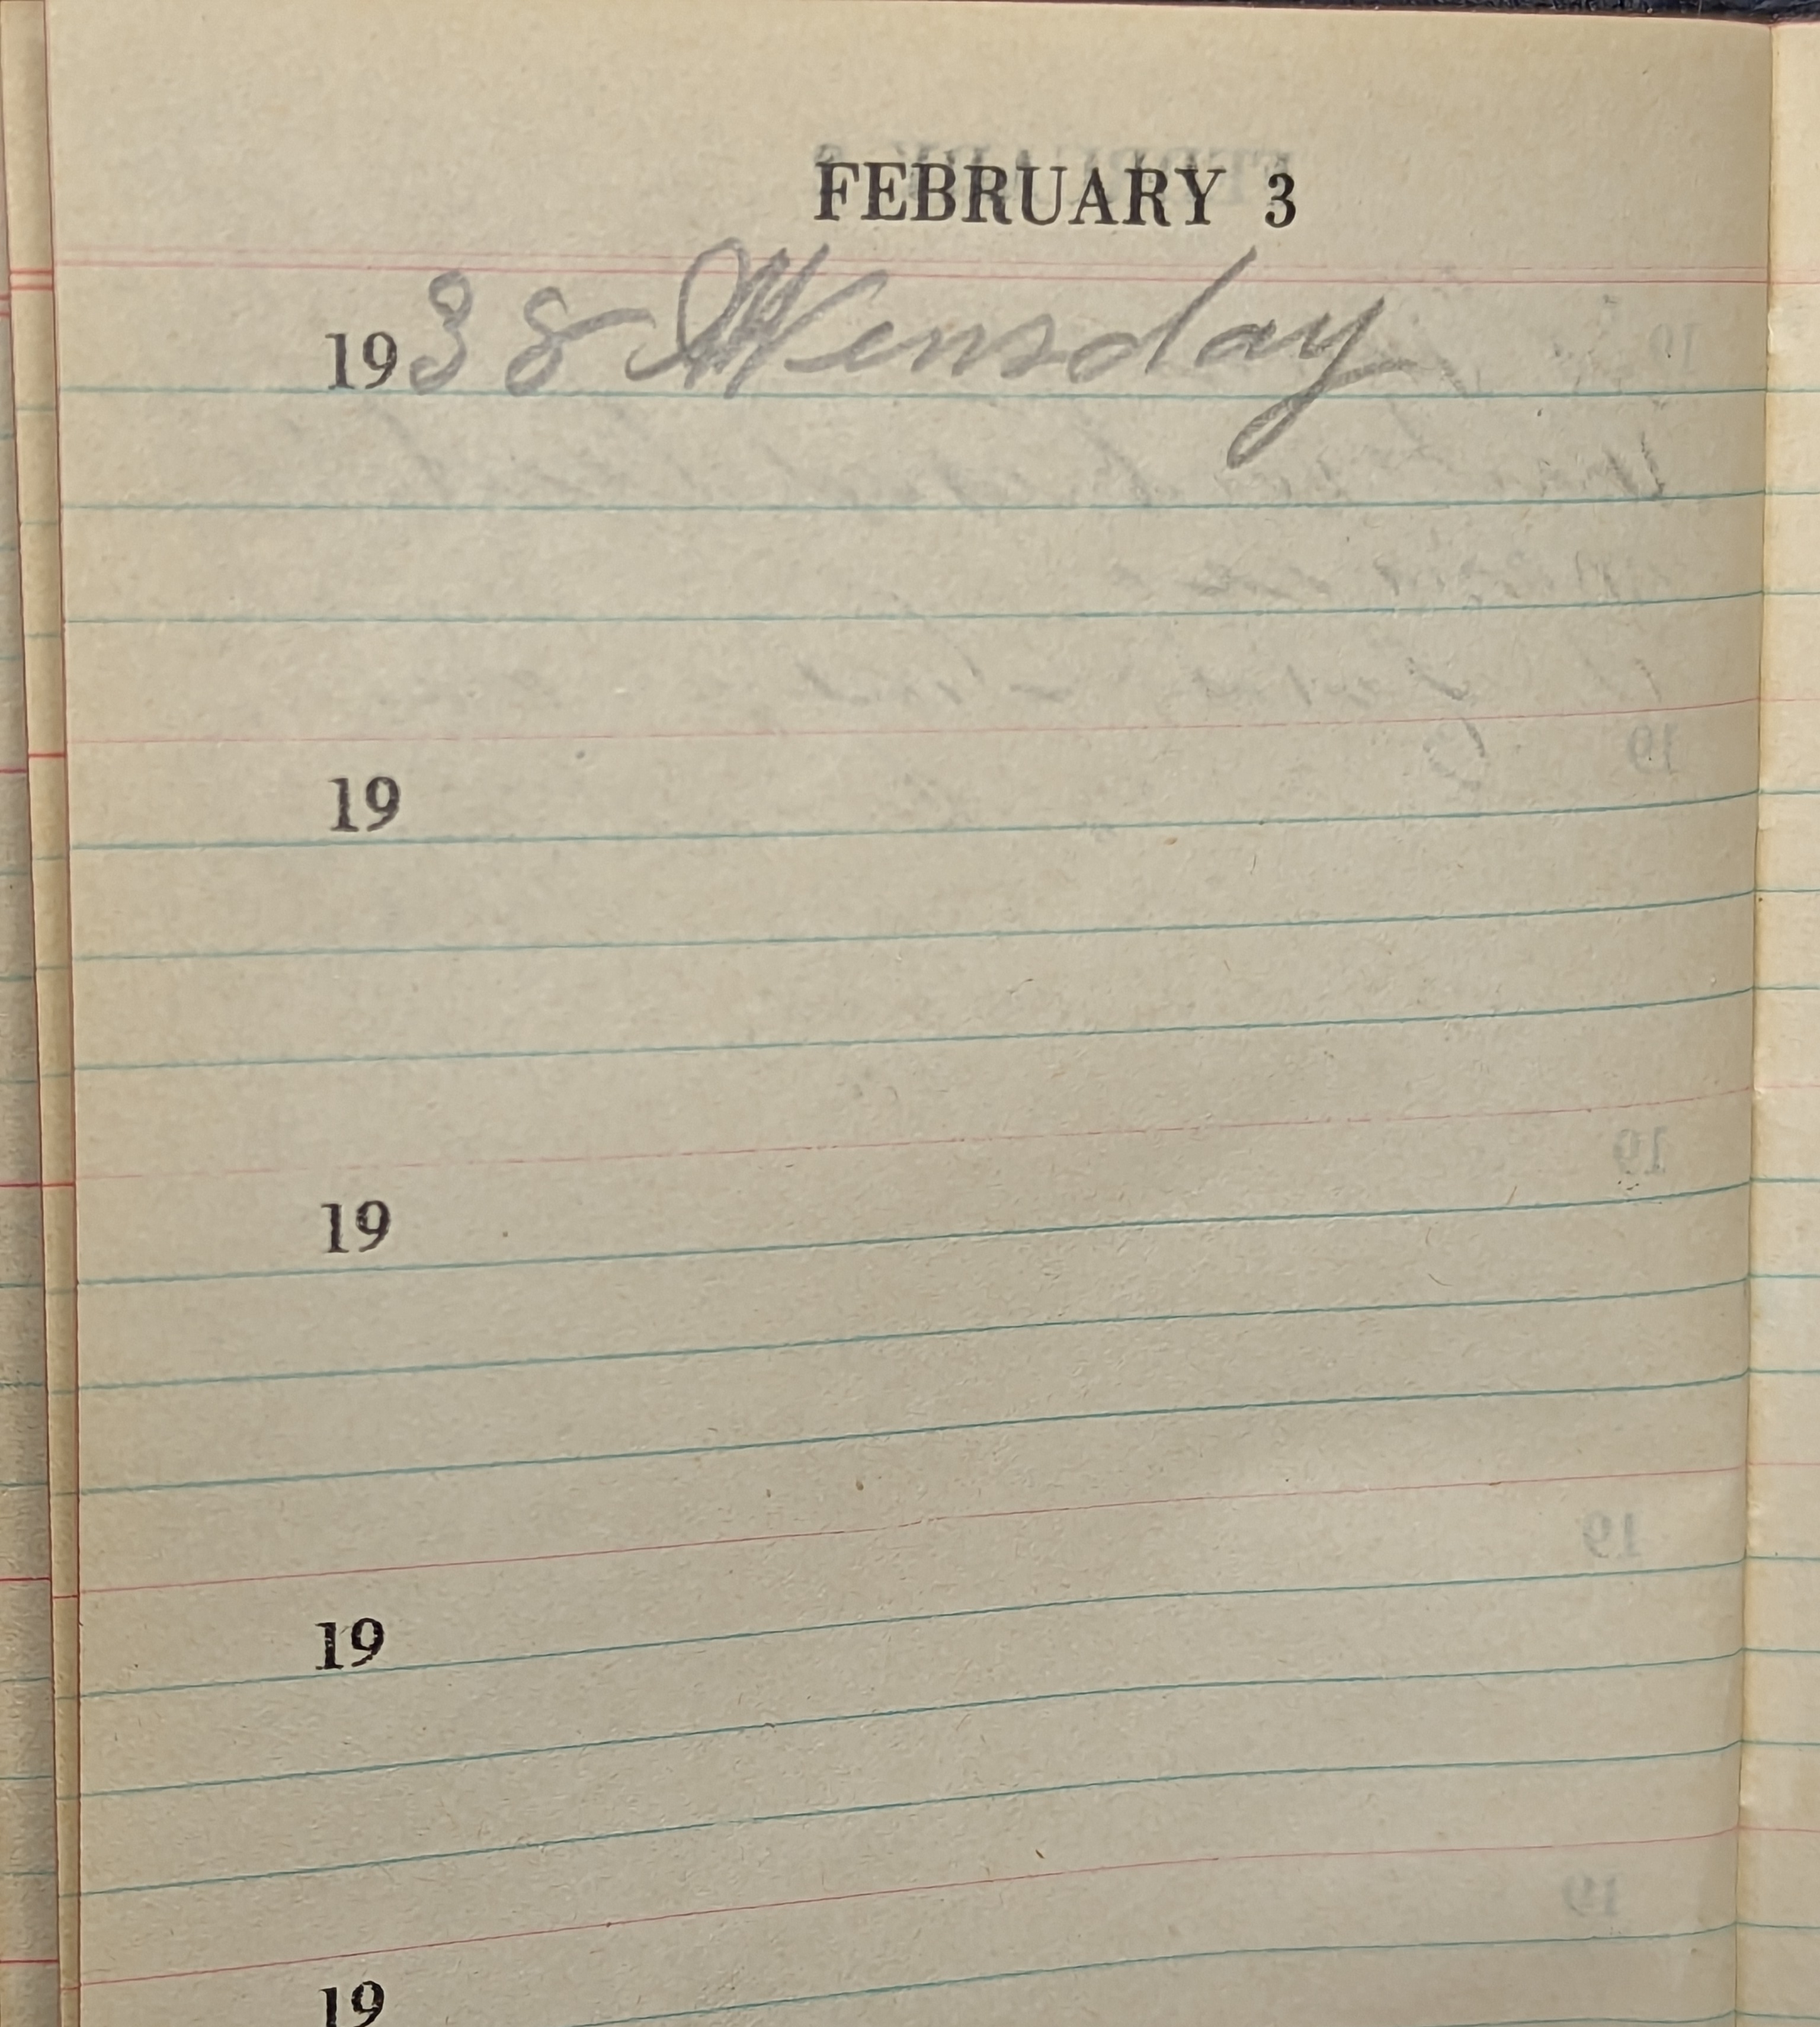 FEBRUARY 3
1938 Wensday
19
19
19
19